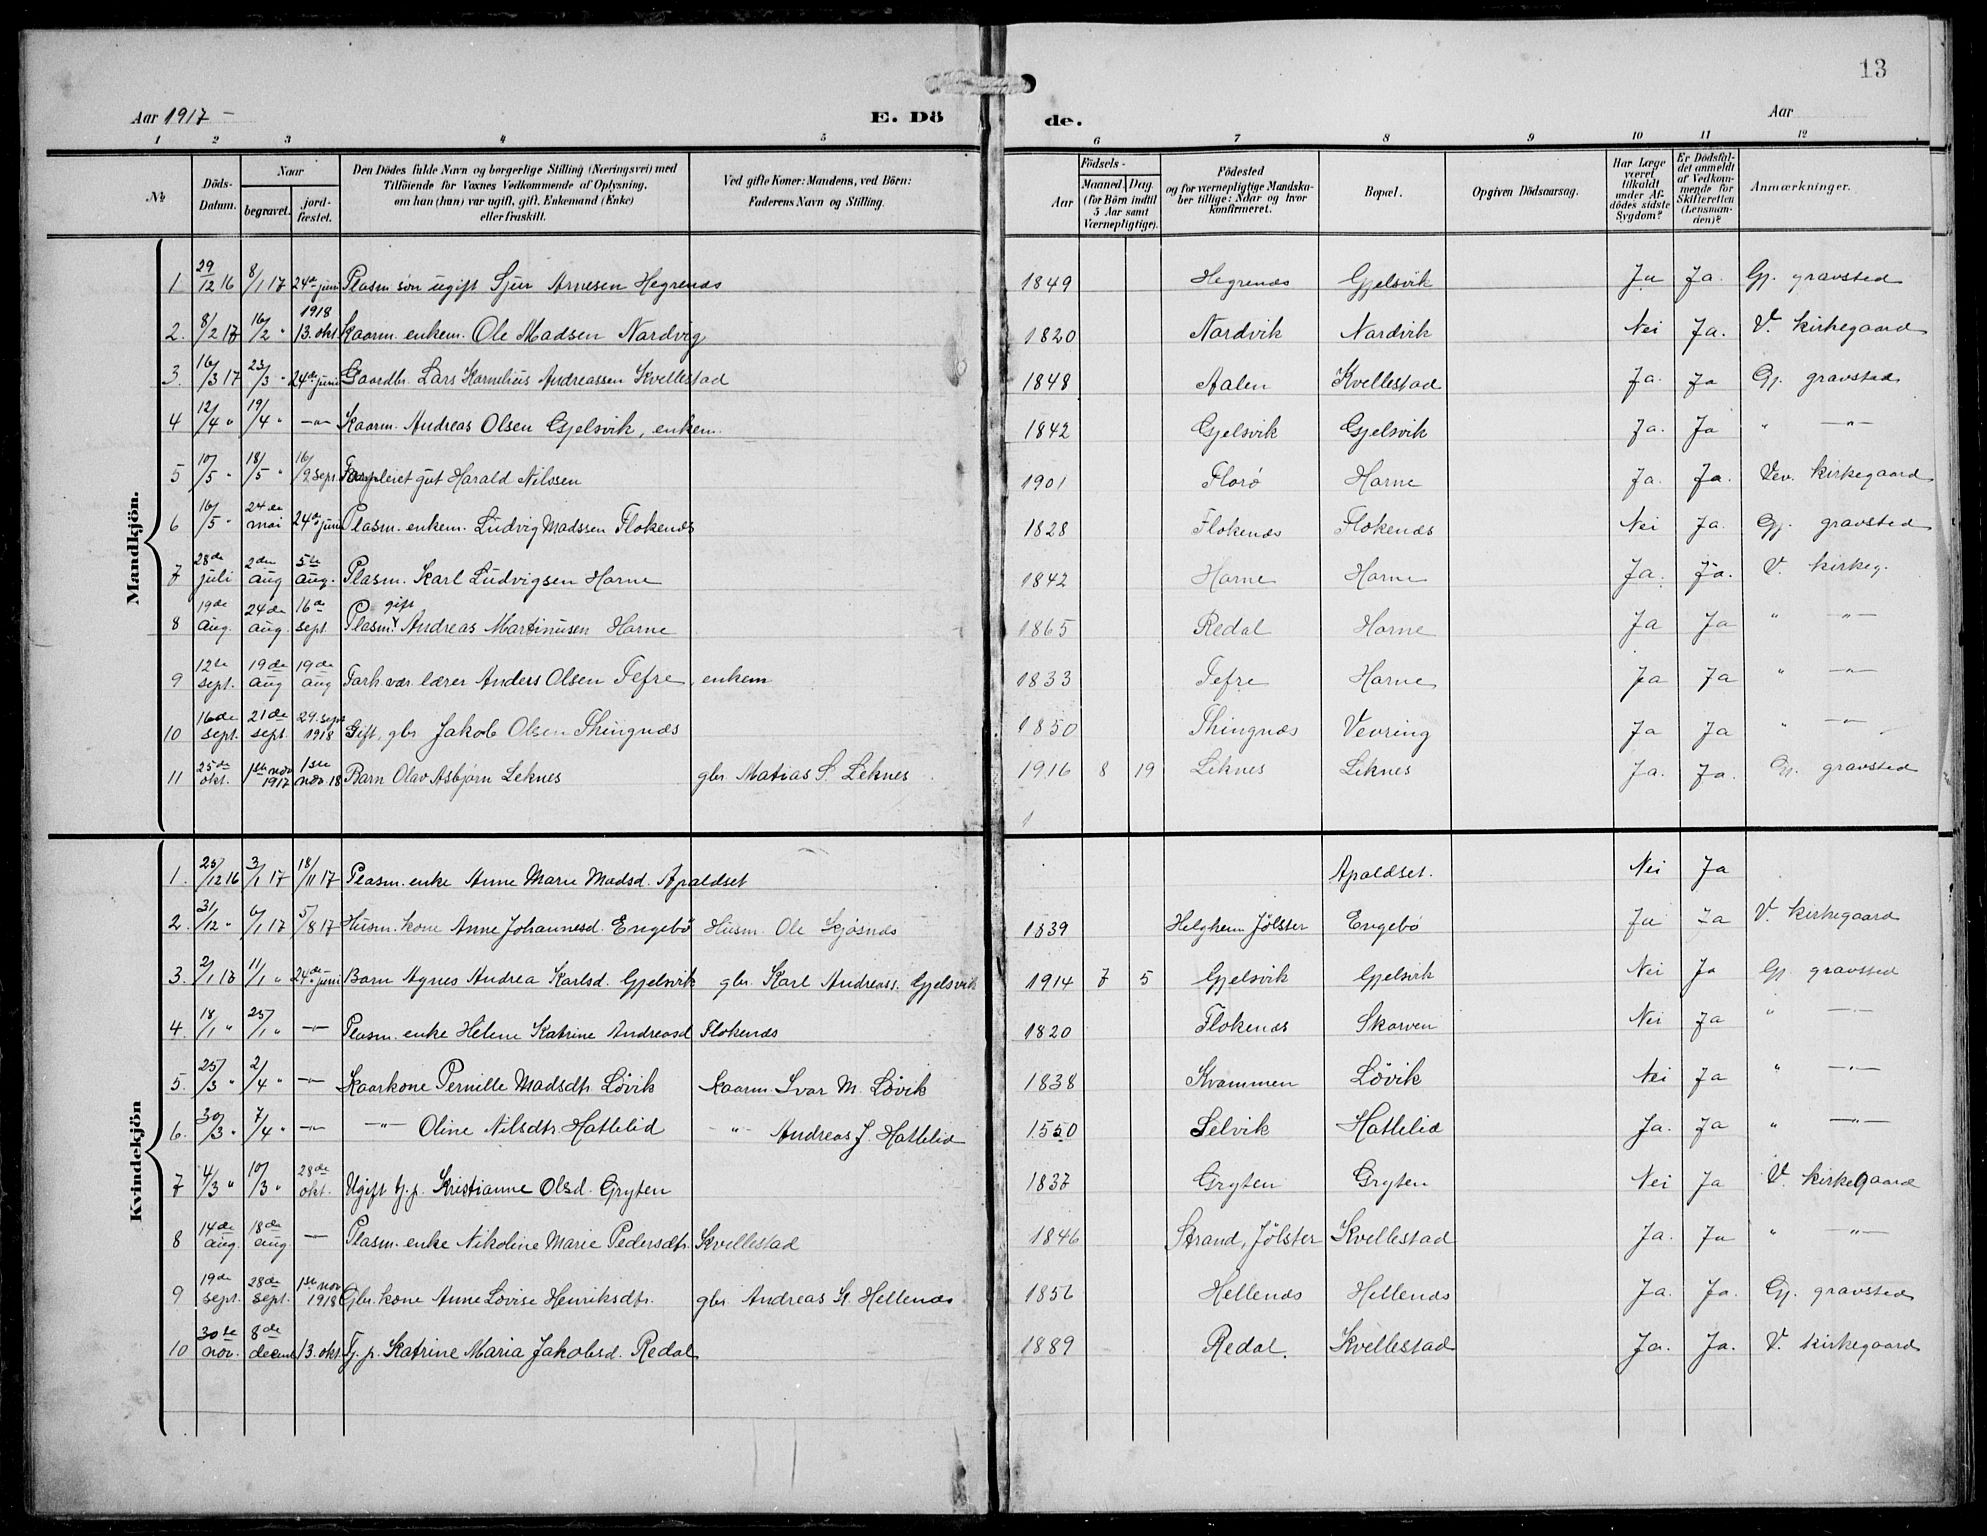 13
Aar 1917 – E. Dö de. Aar
1 2 3 4 5 6 7 8 9 10 11 12
№ Döds-Datum. Naar begravet. jordfæstet. Den Dödes fulde Navn og borgerlige Stilling (Næringsvei) med Tilföiende for Voxnes Vedkommende af Oplysning, om han (hun) var ugift, gift, Enkemand (Enke) eller fraskilt. Ved gifte Koner: Mandens, ved Börn: Faderens Navn og Stilling. Aar Födsels- Maaned. Dag. (for Börn indtil 5 Aar samt Værnepligtige). Födested og for værnepligtige Mandskaber tillige: Naar og hvor konfirmeret. Bopæl. Opgiven Dödsaarsag. Har Læge været tilkaldt under Afdödes sidste Sygdom? Er Dödsfaldet anmeldt af Vedkommende for Skifteretten (Lensmanden)? Anmærkninger.
Mandkjön.
1 29/12 16 8/1 17 24de juni Plasm. søn ugift Sjur Arnesen Hegrenæs 1849 Hegrenæs Gjelsvik Ja Ja. Gj. gravsted
2. 8/2 17 16/2 " 1918 13. okt. Kaarm. enkem. Ole Madsen Nardvig 1820 Nardvik Nardvik Nei Ja. V. kirkegaard
3. 16/3 17 23/3 " 24de juni Gaardbr. Lars Kornelius Andreassen Kvellestad 1848 Aalen Kvellestad Ja. Ja Gj. gravsted
4 12/4 " 19/4 " —"— Kaarm. Andreas Olsen Gjelsvik, enkem. 1842 Gjelsvik Gjelsvik Ja. Ja " —"—
5 10/5 " 18/5 " 16/9 sept. Forpleiet gut Harald Nilssen 1901 Florø Horne Ja. Ja. Vev. kirkegaard
6 16/5 " 24de mai 24de juni Plasm. enkem. Ludvig Madssen Flokenæs 1828 Flokenæs Flokenæs Nei Ja. Gj. gravsted
7 28de juli 2den aug 5te aug. Plasm. Karl Ludvigsen Horne 1842 Horne Horne Ja. Ja. V. kirkeg.
8 19de aug. 24de aug. 16de sept. Plasm. gift Andreas Martinusen Horne 1865 Redal Horne Ja Ja " —"—
9 12te sept. 19de aug 19de aug Forh.vær. lærer Anders Olsen Tefre, enkem 1833 Tefre Horne Ja Ja " —"—
10 16de sept. 21de sept. 29. sept 1918 Gift, gbr. Jakob Olsen Thingnæs 1850 Thingnæs Vevring Ja Ja " —"—
11 25de okt. 1ste nov 1917 1ste nov. 18 Barn Olav Asbjørn Leknes gbr. Matias S. Leknes 1916 8 19 Leknes Leknes Ja. Ja. Gj. gravsted
1
Kvindekjön
1. 25/12 16 3/1 17 18/11 17 Plasm. enke Anne Marie Madsd. Apaldset Apaldset. Nei Ja
2. 31/12 " 6/1 17 5/8 17 Husm. kone Anne Johannesd. Engebø Husm. Ole Kjøsnæs 1839 Helghem Jølster Engebø Ja Ja V. kirkegaard
3. 2/1 17 11/1 " 24de juni Barn Agnes Andrea Karlsd. Gjelsvik gbr. Karl Andreass. Gjelsvik 1914 7 5 Gjelsvik Gjelsvik Nei Ja Gj. gravsted
4. 18/1 " 25/1 " —"— Plasm. enke Helene Katrine Andreasd Flokenæs 1820 Flokenæs Skorven Nei Ja " —"—
5. 25/3 " 2/4 " —"— Kaarkone Pernille Madsdtr. Løvik Kaarm. Ivar M. Løvik 1838 Kvammen Løvik Nei Ja " —"—
6. 30/3 " 7/4 " —"— —"— Oline Nilsdtr. Hatlelid —"— Andreas J. Hatlelid 1550 Selvik Hatlelid Ja. Ja " —"—
7 4/3 " 10/3 " 28de okt. Ugift tj. p. Kristianne Olsd. Gryten 1837 Gryten Gryten Nei Ja V. kirkegaard
8 14de aug. 18de aug — Plasm. enke Nikoline Marie Pedersdtr. Kvellestad 1846 Strand, Jølster Kvellestad Ja. Ja " —"—
9 19de sept. 28de sept. 1ste nov 1918 Gbr. kone Anne Lovise Henriksdtr. gbr. Andreas K. Hellenæs 1856 Hellenæs Hellenæs Ja. Ja. Gj. gravsted
10 30te nov. 8de decemb 13. okt. Tj. p. Katrine Maria Jakobsd. Redal 1889 Redal. Kvellestad Ja. Ja. V. kirkegaard